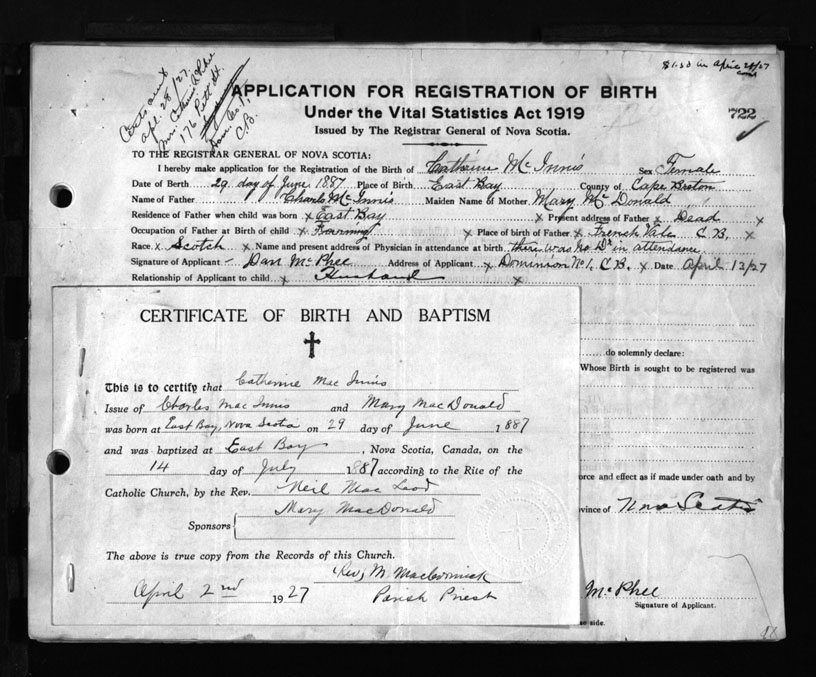 $1.50 in April 28/27
Certs out
Apl. 28/27.
Mrs. Cathrine McPhee
176 Pitt St.
C.B.
APPLICATION FOR REGISTRATION OF BIRTH
Under the Vital Statistics Act 1919
722
Issued by The Registrar General of Nova Scotia.
TO THE REGISTRAR GENERAL OF NOVA SCOTIA:
I hereby make application for the Registration of the Birth of Catherine McInnis Sex Female
Date of Birth 29 day of June 1887 Place of Birth East Bay County of Cape Breton
Name of Father Charls McInnis Maiden Name of Mother Mary McDonald
Residence of Father when child was born x East Bay x Present address of Father x Dead x
Occupation of Father at Birth of child x Farming x Place of birth of Father x French Vale C B, x
Race x Scotch x Name and present address of Physician in attendance at birth there was no Dr in attendance
Signature of Applicant - Dan McPhee Address of Applicant x Dominion No 1. C B. x Date April 12/27
Relationship of Applicant to child x Husband x
CERTIFICATE OF BIRTH AND BAPTISM
This is to certify that Catherine Mac Innis
Issue of Charles Mac Innis and Mary MacDonald
was born at East Bay, Nova Scotia on 29 day of June 1887
and was baptized at East Bay, Nova Scotia, Canada, on the
14 day of July 1887 according to the Rite of the
Catholic Church, by the Rev. Neil Mac Leod
Mary MacDonald
Sponsors
The above is true copy from the Records of this Church.
(Rev) M. MacCormick
April 2nd 1927 Parish Priest
do solemnly declare:
Whose Birth is sought to be registered was
orce and effect as if made under oath and by
vince of Nova Scotia
McPhee
Signature of Applicant.
se side.